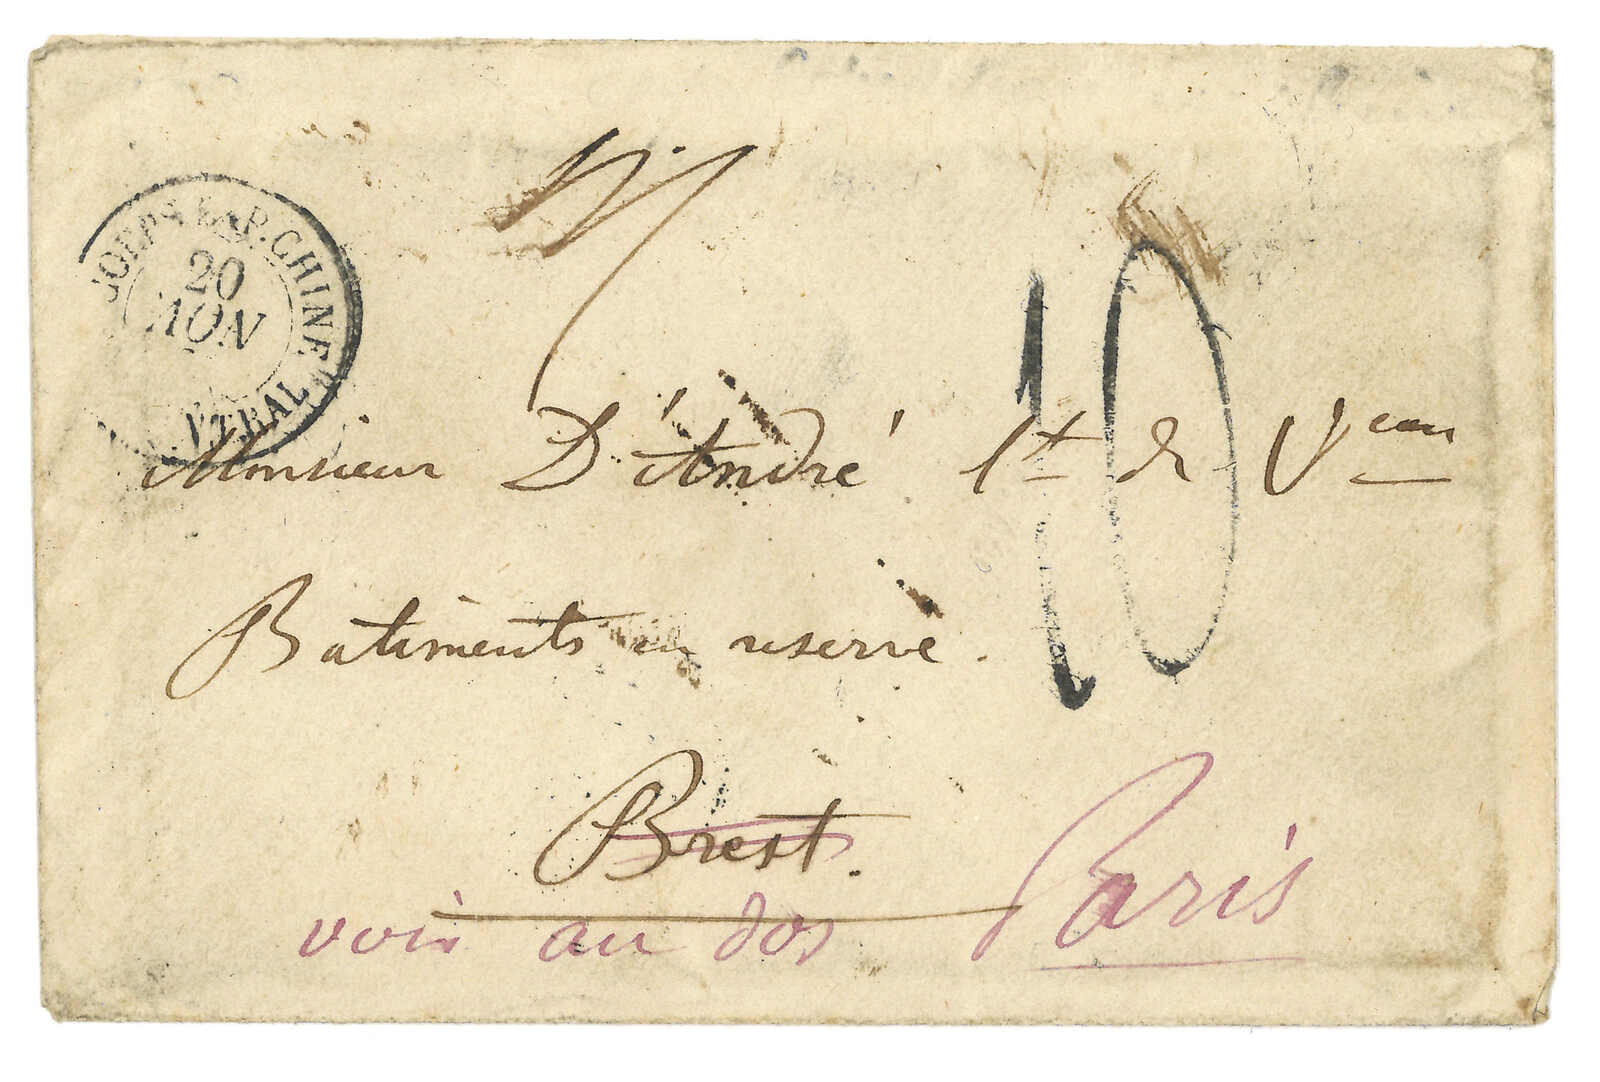 CORPS EXP. CHINE
20
AOU
10
Monsieur D'André Lt de Veau
Batiments en réserve.
Brest.
voir au dos Paris